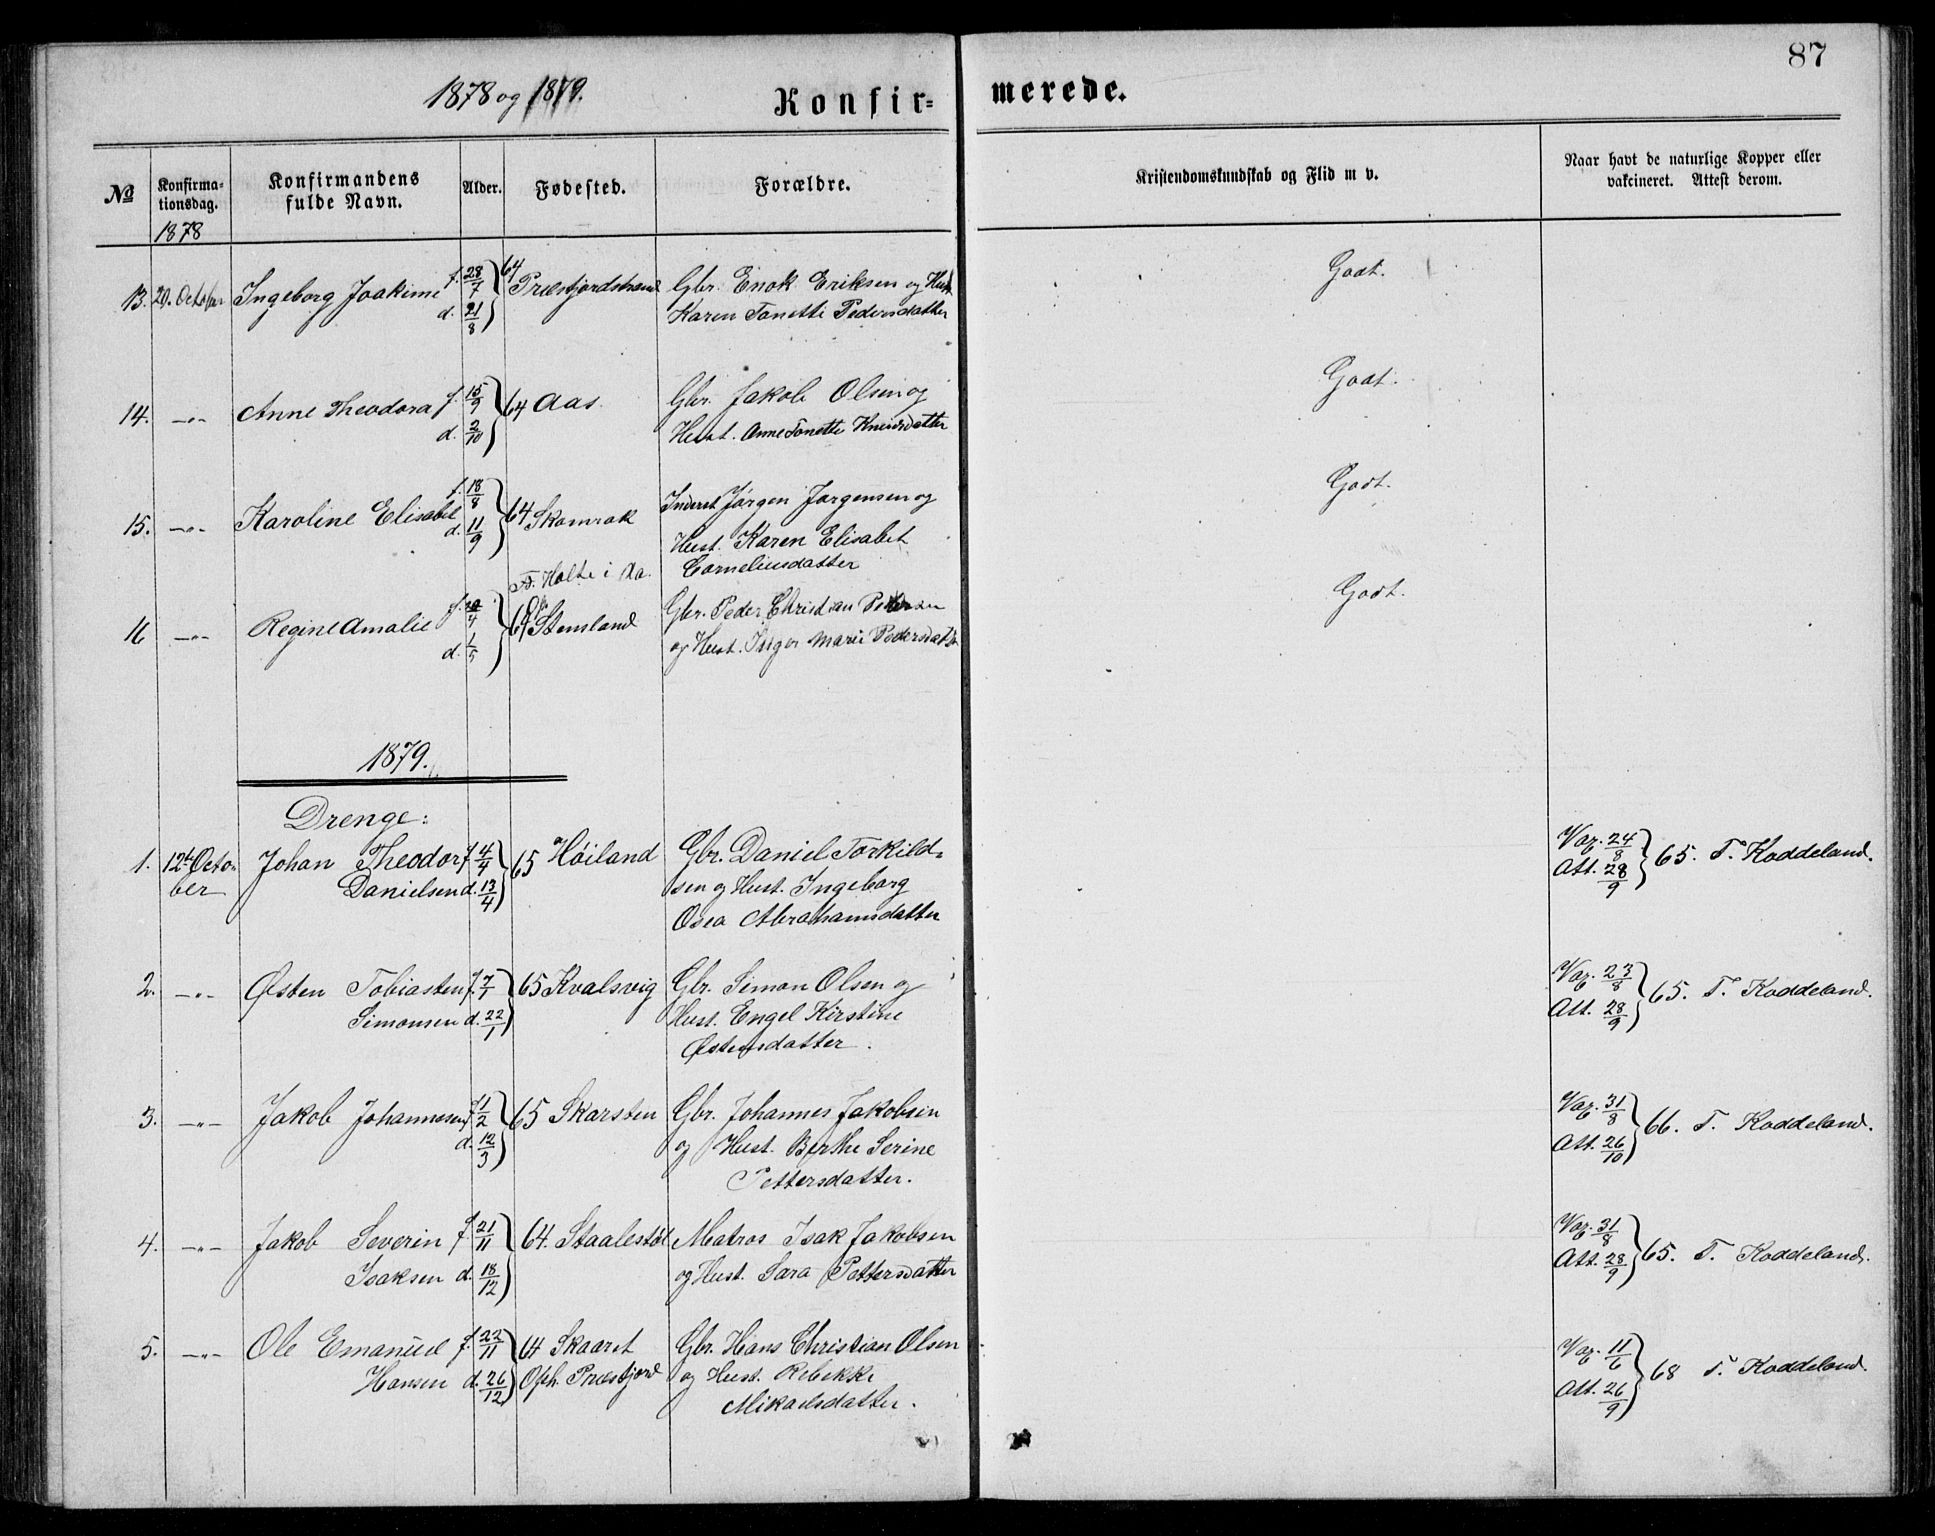 87
1878 og 1879.
Konfir= merede.
No
Konfirma-
tionsdag.
Konfirmandens
fulde Navn.
Alder.
Fødested.
Forældre.
Kristendomskundskab og Flid m v.
Naar havt de naturlige Kopper eller
vakcineret. Attest derom.
1878
13. 20. October Ingeborg Joakime f. 28/7 64 Præstfjordstrand Gbr. Enok Eriksen og Hust
d. 21/8 Karen Tonette Pedersdatter
Godt.
14. -"- Anne Theodora f. 15/9 64 Aas Gbr. Jakob Olsen og
d. 2/10 Hust. Anne Tonette
Godt.
15. -"- Karoline Elisabet f. 18/8 64 Skomrak Inderst Jørgen Jørgensen og
d. 11/9 Hust. Karen Elisabet
Corneliusdatter
Godt.
F. Holte i
16 -"- Regine Amalie f. /4 64 Stensland Gbr. Peder Christian Pedersen
d. 1/5 og Hust. Inger Marie Pedersdatter
Godt.
1879.
Drenge:
1. 12te Octo- Johan Theodor f. 4/4 65 Høiland Gbr. Daniel Torkild-
ber Danielsen d. 13/4 sen og Hust. Ingeborg
Osea Abrahamsdatter
Vaz. 24/8
Att. 28/9 65. T. Koddeland.
2. -"- Østen Tobiasten f. 7/1 65 Kvalsvig Gbr. Simon Olsen og
Simonsen d. 22/1 Hust. Engel Kirstine
Østensdatter.
Vaz. 23/8
Att. 28/9 65. T. Koddeland.
3. -"- Jakob Johannesen f. /2 65 Skarsten Gbr. Johannes Jakobsen
d. 12/3 og Hust. Berthe Serine
Pettersdatter.
Vaz. 31/8
Att. 26/10 66. T. Koddeland.
4. -"- Jakob Severin f. 21/11 64. Staalestøl Matros Isak Jakobsen
Isaksen d. 18/12 og Hust. Sara Pettersdatter
Vaz. 31/8
Att. 28/9 65. T. Koddeland.
5. -"- Ole Emanuel f. 22/11 64 Skaaret Gbr. Hans Christian Olsen
Hansen d. 26/12 Oph. Præstfjord og Hust. Rebekke
Mikaelsdatter.
Vaz. 11/6
Att. 26/9 68 T. Koddeland.